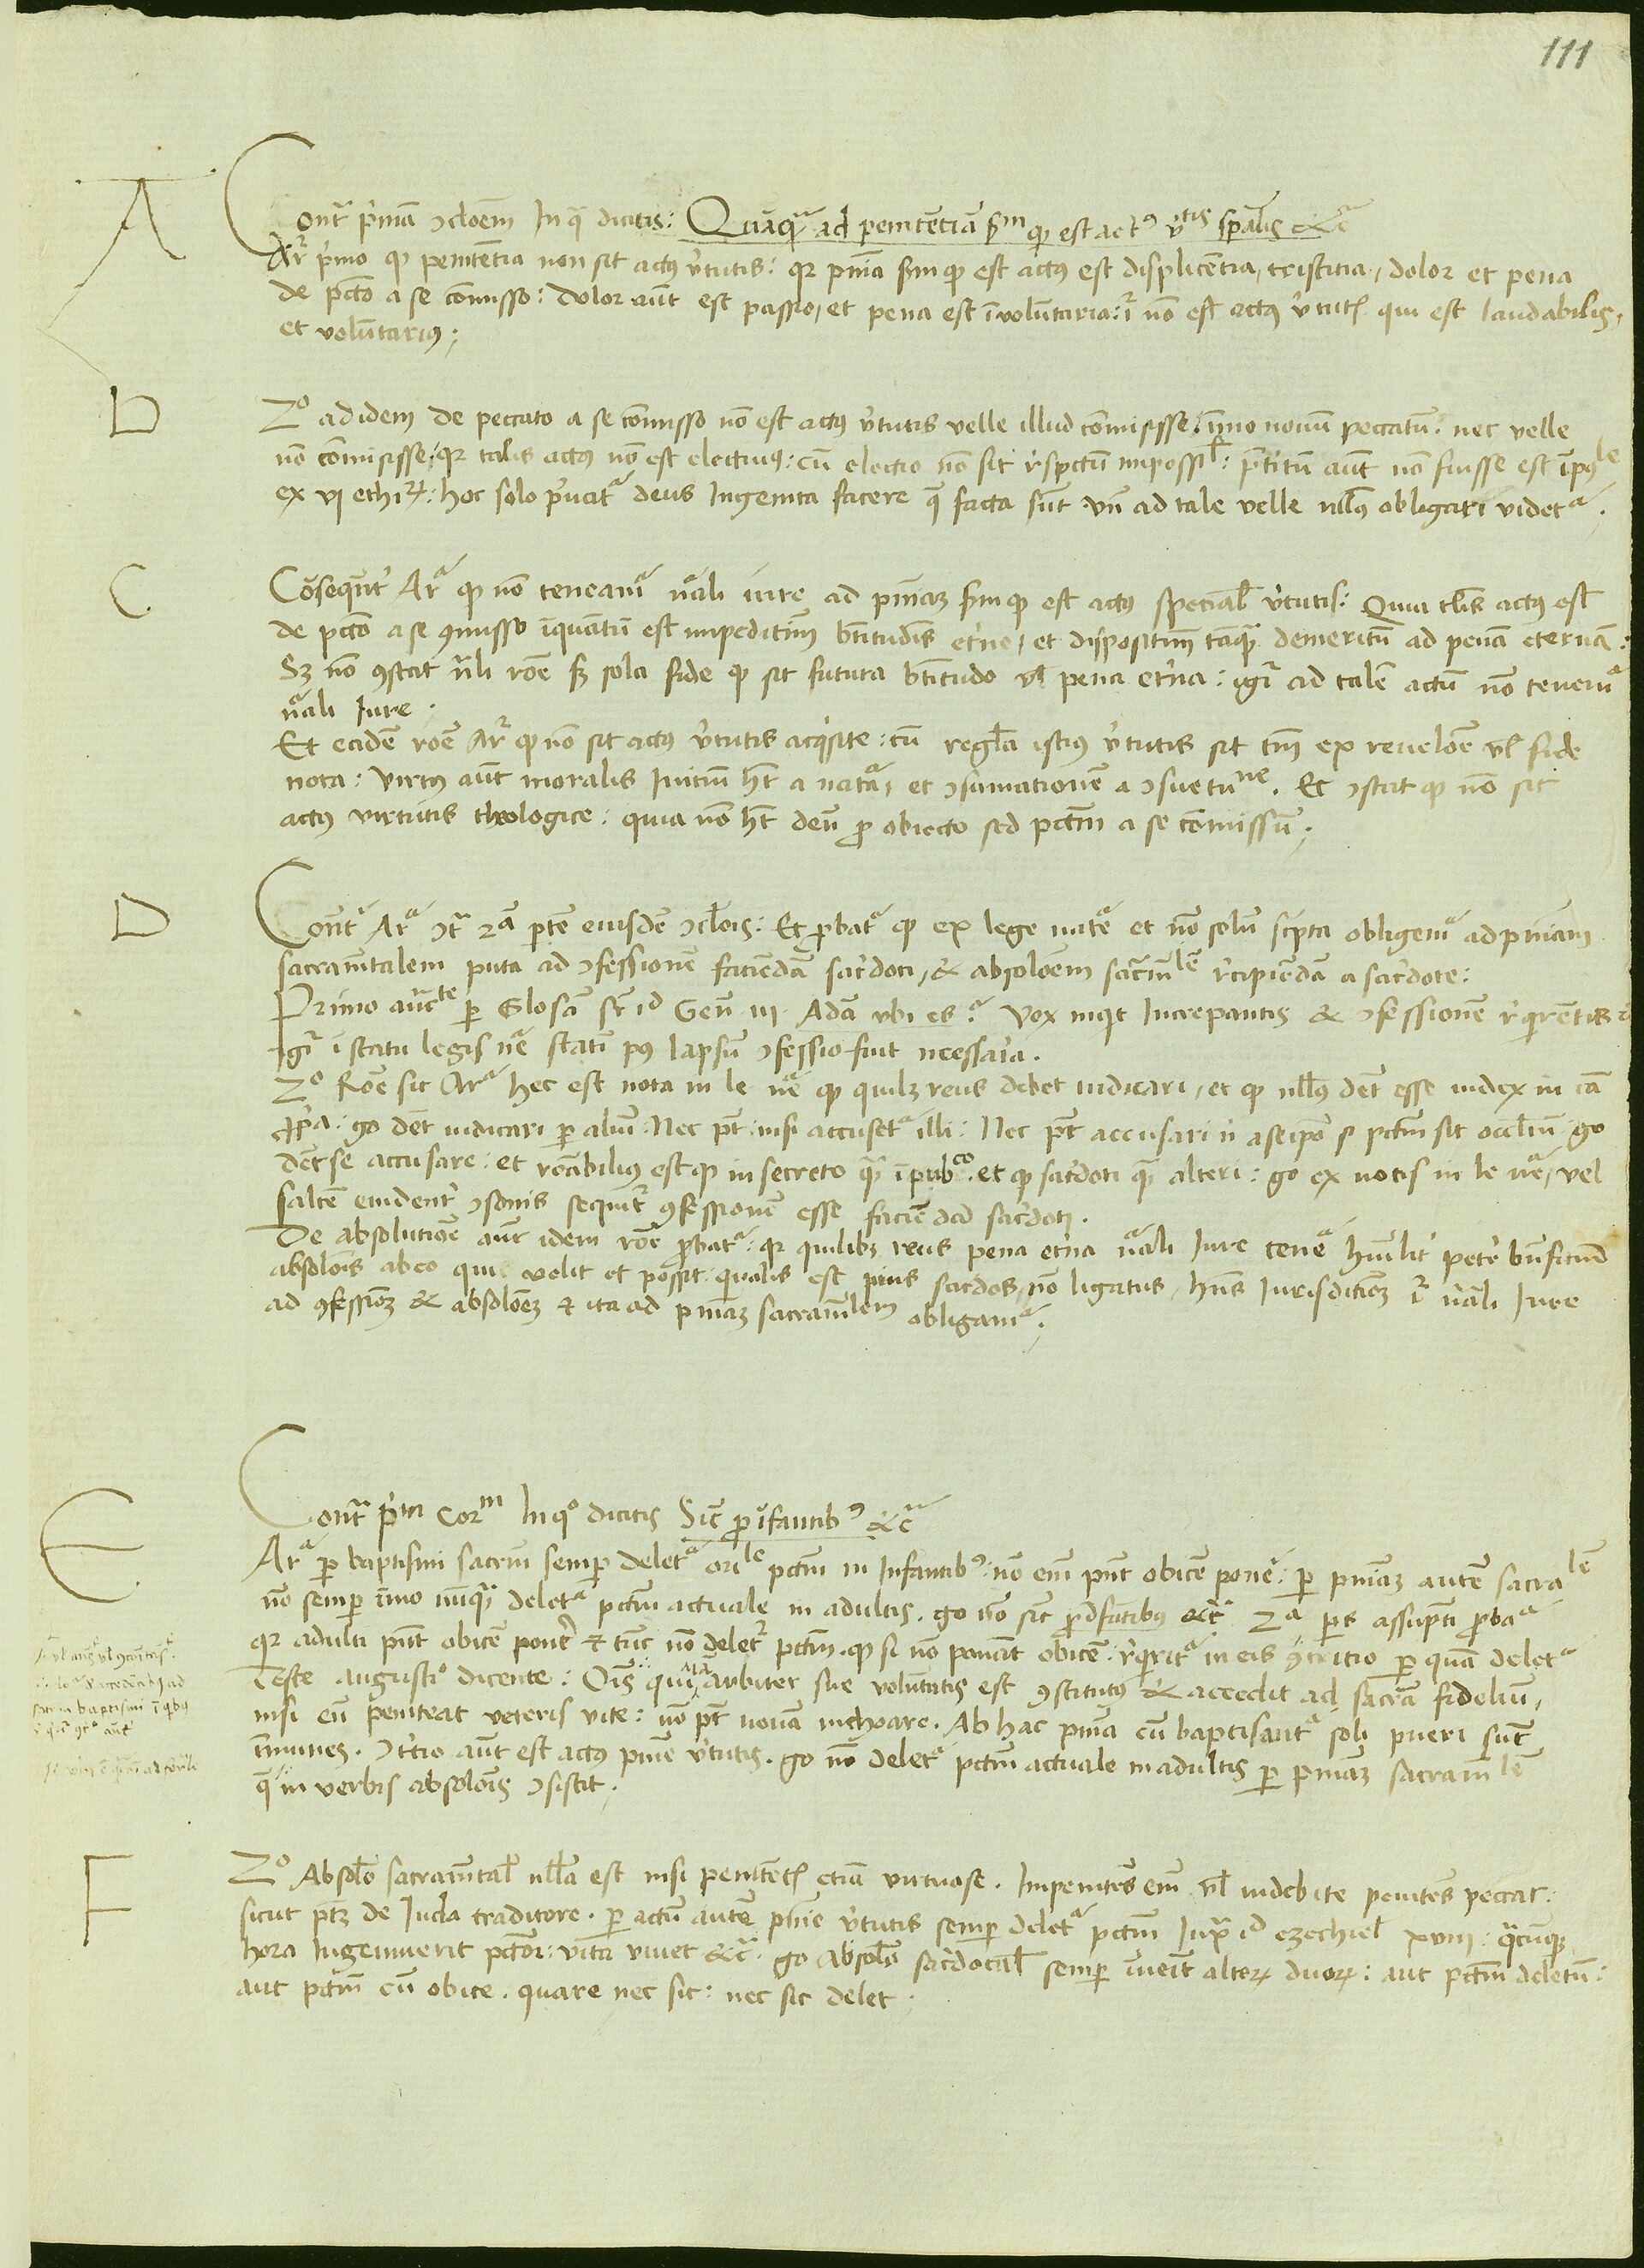 111
A
Contra p̄mā ɔcloēm In qͣ dicitis: Quāqᷓ ad penitētiā sm̄ qᵒ est actꝰ v̄tis spālis ⁊cͣ
Arr̄ p̄mo qᵒ penitētia non sit actꝰ v̄tutis: qr̄ pnīa sm̄ qᵒ est actꝰ est displicētia, tristitia, dolor et pena
de pctō a se cōmisso: dolor aūt est passio, et pena est īvolūtaria: iᵍ nō est actꝰ v̄tut᷒ qui est laudabilis,
et volūtariꝰ;
b
2ᵒ ad idem de peccato a se cōmisso nō est actꝰ v̄tutis velle illud cōmisisse: īmo nouū peccatū: nec velle
nō cōmisisse: qr̄ talis actꝰ nō est electiuꝰ: cū electio nō sit r̄spectū impossiᵇˡ: p̄teritū aūt nō fuisse est īpoˡᵉ
ex vj ethicoꝝ: hoc solo p̄uatᷓ deus Ingenita facere qͣ facta sūt vn̄ ad tale velle nllꝰ obligari videtᷓ.
C
Cōsequēt̄ Arᷓ qᵒ nō teneamᷓ nāli iure ad pnīaꝫ sm̄ qᵒ est actꝰ spetial̄ v̄tutis: Quia tlīs actꝰ est
de pctō a se ꝯmisso īquātū est impeditiuū btītudīs et̄ne, et dispositiuū tāqᷓ demeritū ad penā eternā:
Sꝫ nō ꝯstat nāli rōe sꝫ sola fide qᵒ sit futura btītudo vl̄ pena et̄na: igr̄ ad talē actū nō tenemᷓ
nāli Iure.
Et eādē rōe Arr̄ qᵒ nō sit actꝰ v̄tutis acq̄site: cū regl̄a istiꝰ v̄tutis sit tm̄ ex reueloē vl̄ fide
nota: virtꝰ aūt moralis Initiū hꝫ a natᷓ, et ɔsumationē a ɔsuetuⁿᵉ. Et ɔstat qᵒ nō sit
actꝰ virtutis theologice: quia nō hꝫ deū ꝓ obiecto sed pctm̄ a se cōmissū;
D
Contᷓ Arᷓ ɔtᷓ 2ᵃ ꝑtē eiusdē ɔclōis: Et ꝓbatᷓ qᵒ ex lege natᷓe et nō solū sc̄pta obligemᷓ ad pnīam
sacramᵗalem puta ad ɔfessionē faciēdā sac̄doti, & absoloēm sacrmˡē r̄cipiēdā a sac̄dote:
Primo auᶜᵗᵉ ꝑ Glosā sr̄ id Gen̄ iij. Adā vbi es? Vox inqͥt Increpantis & ɔfessionē r̄qͥrentis
Igr̄ ī statu legis nᷓe statī pꝰ lapsū ɔfessio fuit necessaria.
2ᵒ Rōe sic Arᷓ hec est nota in le nᷓe qᵒ quilꝫ reus debet iudicari, et qᵒ nllꝰ dēt esse iudex in cā
ꝓp̄a: gᵒ dēt iudicari ꝑ aliū: Nec pᵗ nisi accusetᷓ illi: Nec pᵗ accusari n̄ a seip̄o si pctm̄ sit occltū: gᵒ
dēt se accusare: et rōnabiliꝰ est qᵒ in secreto qᷓ ī pubᶜᵒ. et qᵒ sac̄doti qᷓ alteri: gᵒ ex notis in le nᷓe, vel
saltē euidēt̄ ɔsonis sequit᷑ ꝯfessionē esse faciēdā sac̄doti.
De absolutiōe aūt idem rōe ꝓbatᷓ: qr̄ quilibꝫ reus pena et̄na nāli Iure tenᷓe humilit̄ pete᷑ bn̄ficiū
absolōis ab eo qui velit et possit: qualis est piᵘs sac̄dos, nō ligatus, hn̄s Iurisdictiōꝫ iᵍ nāli Iure
ad ꝯfessiōꝫ & absolōeꝫ & ita ad pnīaꝫ sacramˡem obligamᷓ;
E
Contᷓ p̄ᵐ Corᵐ In qᵒ dicitis Sic̄ ꝓ īfantibꝰ ⁊cͣ
Arᷓ ꝑ baptismi sacrm̄ semꝑ deletᷓ oriˡᵉ pctm̄ in Infantibꝰ: nō em̄ pn̄t obicē pone᷑: ꝑ pnīaꝫ autē sacraˡē
nō semꝑ īmo nūqᷓ deletᷓ pctm̄ actuale in adultis. gᵒ nō sic̄ ꝓ īfātibus ⁊cᷓ 2ᵃ ps assūpti ꝓbaᷓ
qr̄ adulti pn̄t obicē pone᷑ & tūc nō delet᷑ pctm̄. qᵒ si nō ponāt obicē: r̄qͥritᷓ in eis ꝯtritio ꝑ quā deletᷓ
Teste augustiᵒ dicente: Oīs qui arbiter sue volūtatis est ꝯstitutꝰ & accedit ad sacrā fidelium,
nisi eū peniteat veteris vite: nō pᵗ nouā inchoare. Ab hac pnīa cū baptisantᷓ soli pueri sūt
īmunes. ɔtr̄tio aūt est actꝰ pnīe v̄tutis. gᵒ nō deletᷓ pctm̄ actuale in adultis ꝑ pnīaꝫ sacramˡē
qͣ in verbis absolōis ɔsistit;
sacrm baptismi ī qͥbꝰ
F
2ᵒ Absolō sacramᵗal̄ nlla est nisi penitēt᷒ etiā virtuose. Impenitēs em̄ vl̄ indebite penitēs peccat:
sicut ptꝫ de Iuda traditore. ꝑ actū autē pnīe v̄tutis semꝑ deletᷓ pctm̄ Iuxᷓ id ezechiel xviij: qͣcūqꝫ
hora Ingemuerit pctōr: vita viuet ⁊cᷓ. gᵒ Absolō sac̄dotal̄ semꝑ īueīt alteꝝ duoꝝ: aut pctm̄ deletū:
aut pctm̄ cū obice. quare nec sic: nec sic delet;